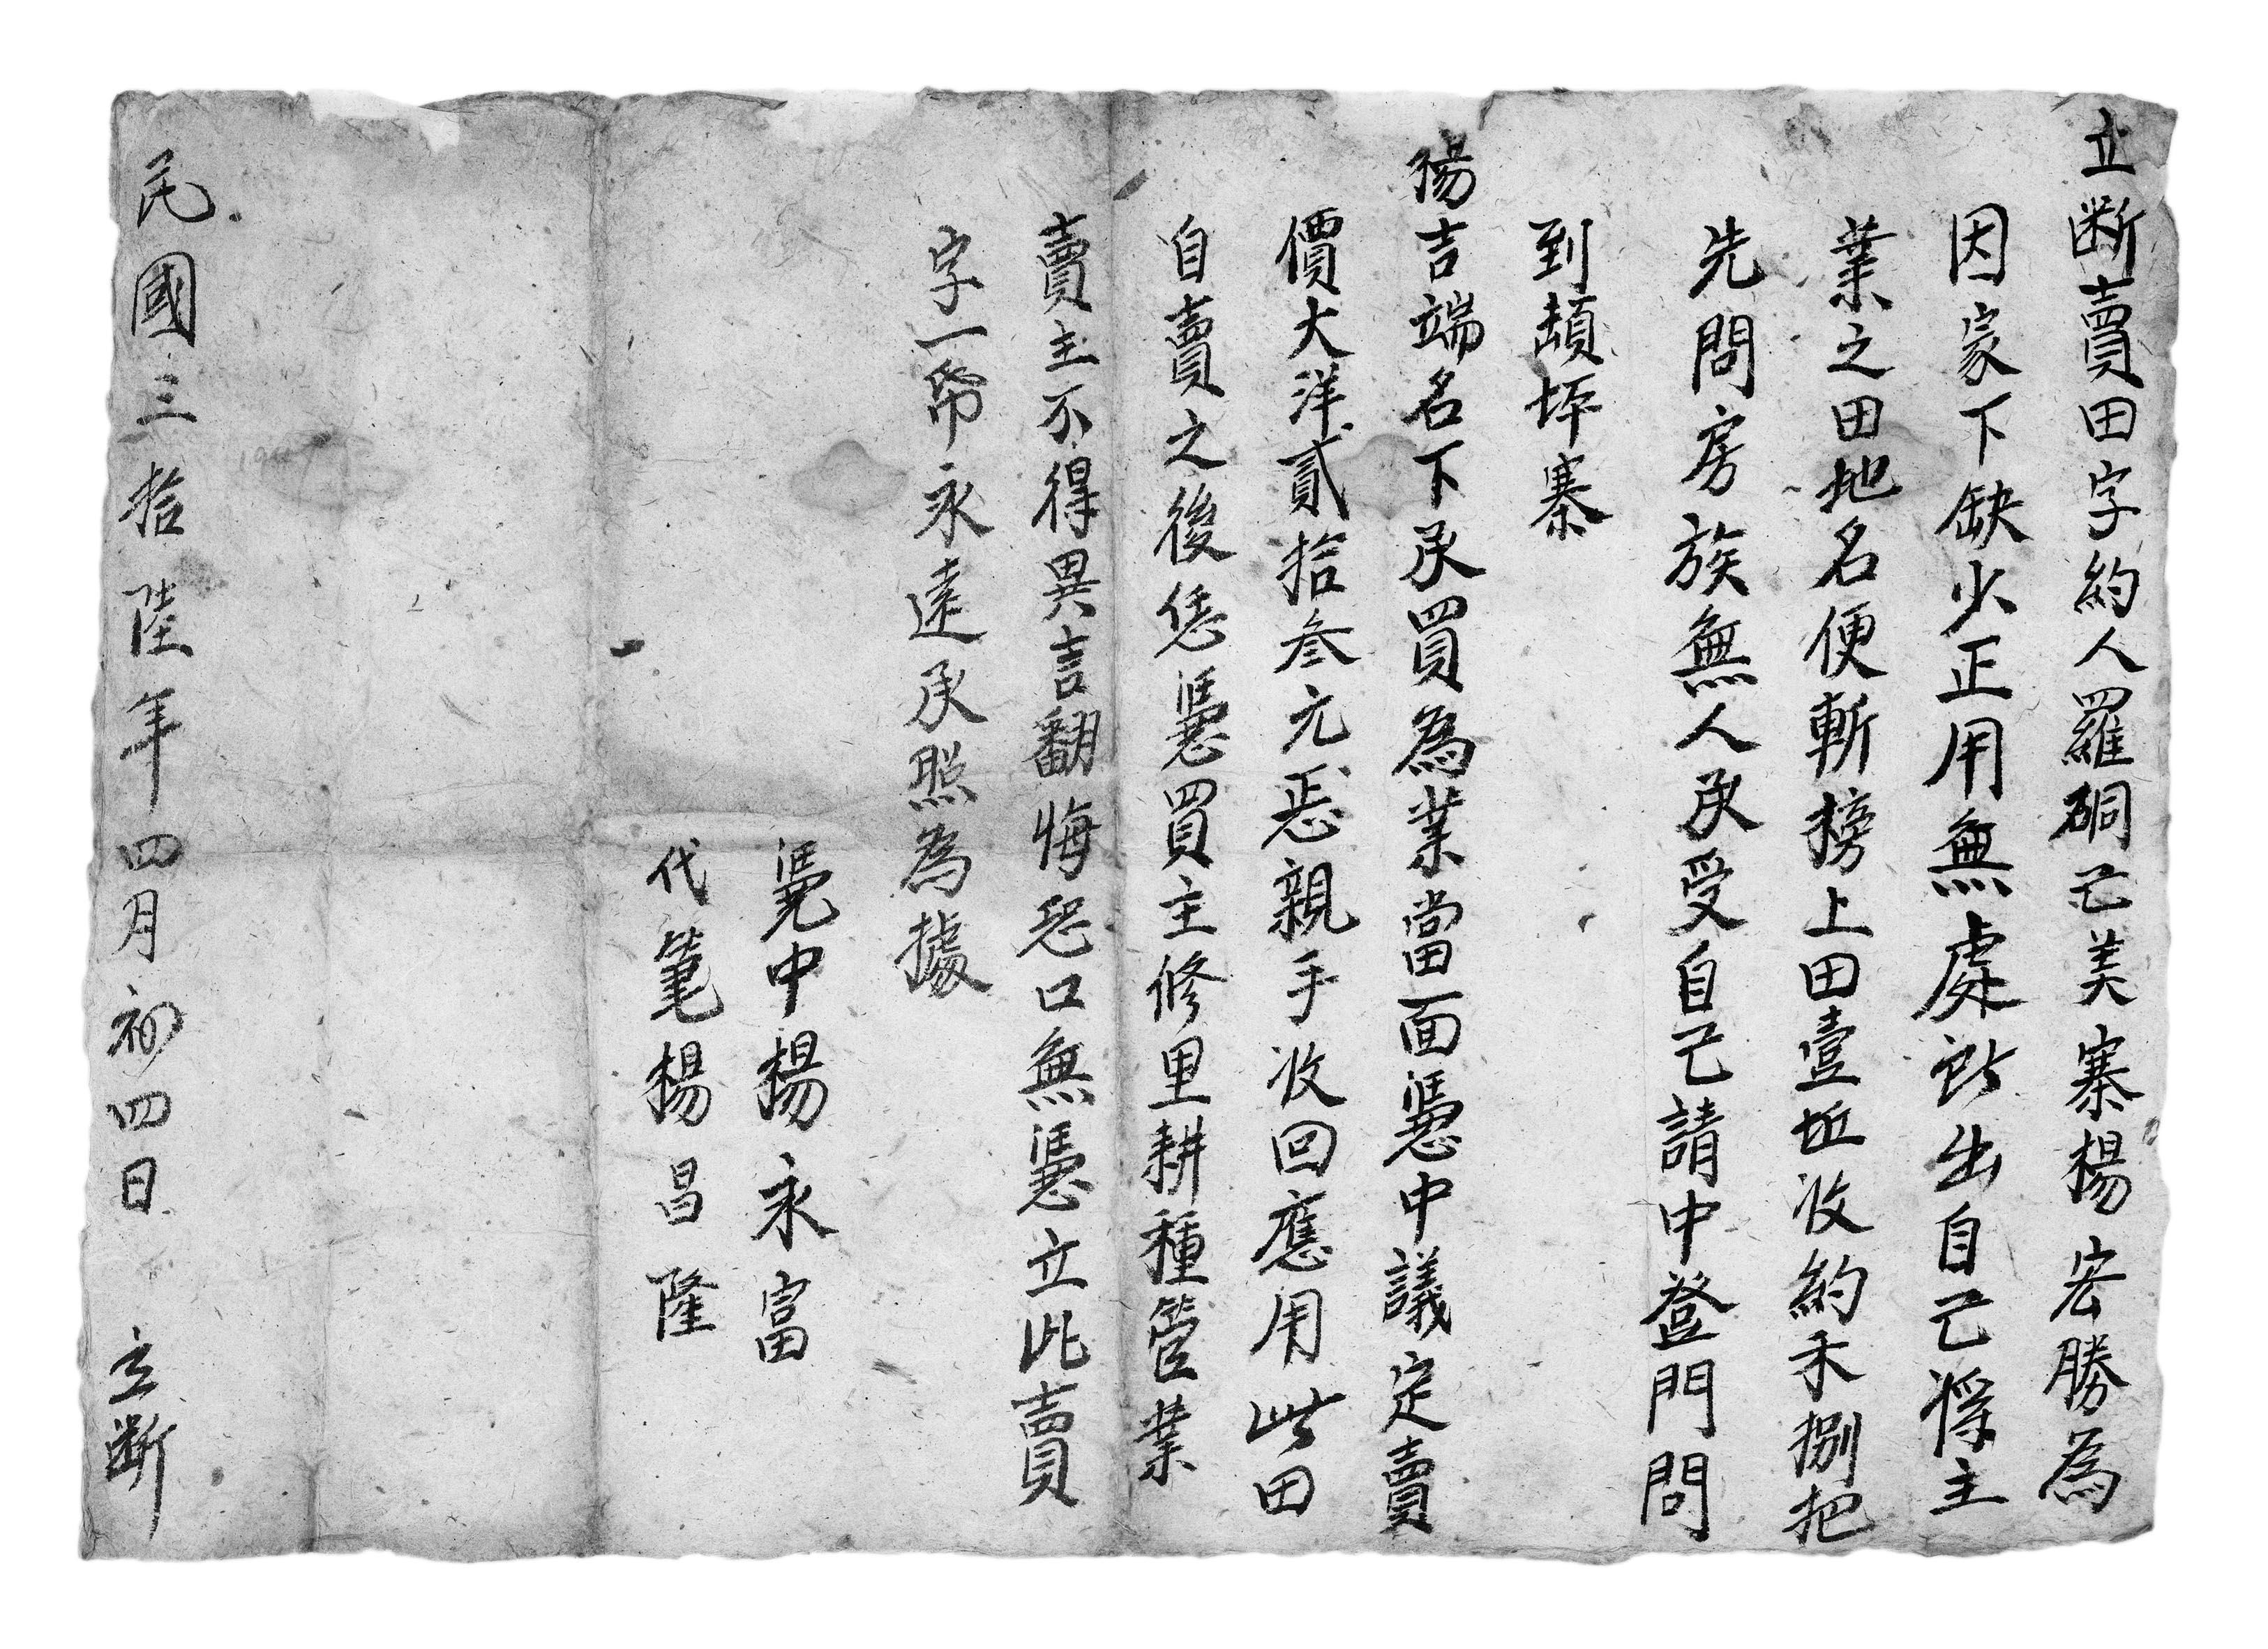 立断賣田字約人羅硐己美寨楊宏勝為
因家下缺少正用無處所出自己将主
業之田地名便斬榜上田壹坵收約禾捌把
先問房族無人承受自己請中登門問
到頡坪寨
楊吉端名下承買為業當面憑中議定賣
價大洋貳拾叁元恁親手收回應用此田
自賣之後恁憑買主修里耕種管業
賣主不得異言翻悔恐口無憑立此賣
字一帋永遠承照為據
憑中楊永富
代筆楊昌隆
民國三拾陸年四月初四日 立断